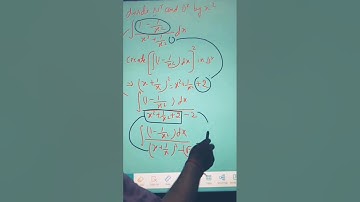 divide Nʳ and Dʳ by x²
∫ (1 - 1/x²) / (x² + 1/x²) dx
create [∫(1 - 1/x²)dx]² in Dʳ
⇒ (x + 1/x)² = x² + 1/x² + 2
∫ (1 - 1/x²) dx / (x² + 1/x² + 2 - 2)
∫ (1 - 1/x²) dx / (x + 1/x)² - (